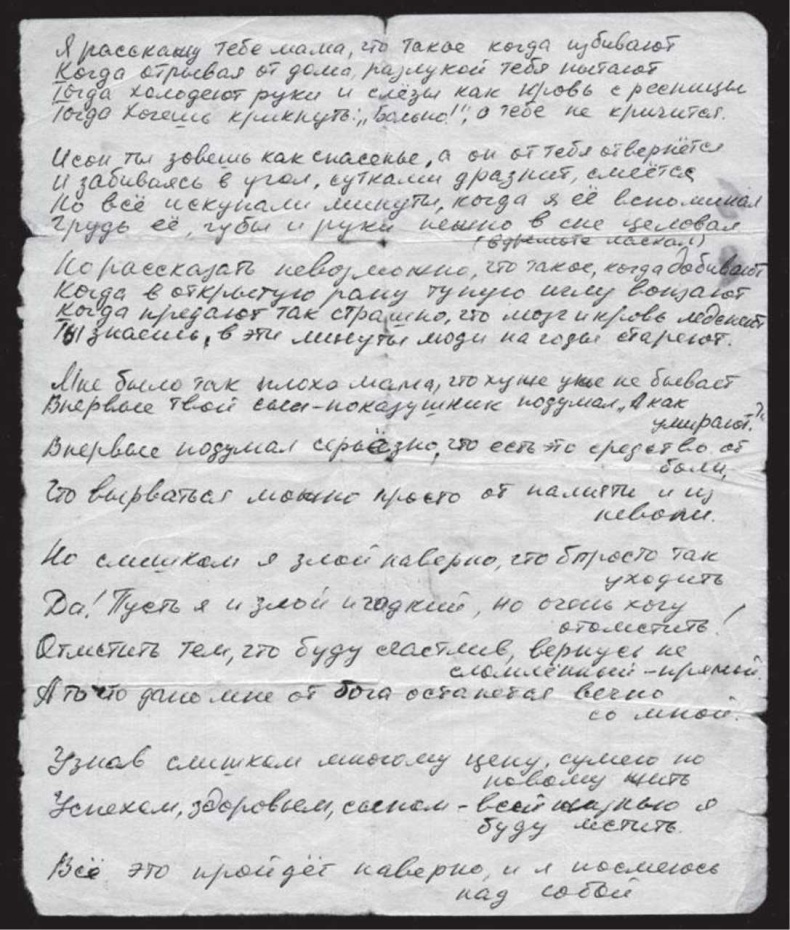 Я расскажу тебе мама, что такое когда избивают
Когда отрывая от дома, разлукой тебя пытают
Тогда холодеют руки и слёзы как кровь с ресницы
Тогда хочешь крикнуть: „Больно!", а тебе не кричится.
И сон ты зовешь как спасенье, а он от тебя отвернётся
И забиваясь в угол, сутками дразнит, смеётся
Но всё искупали минуты, когда я её вспоминал
Грудь её, губы и руки нежно в сне целовал
(в дремоте ласкал)
Но рассказать невозможно, что такое, когда добивают
Когда в открытую рану тупую иглу вонзают
Когда предают так страшно, что мозг и кровь леденеют
Ты знаешь, в эти минуты люди на годы стареют.
Мне было так плохо мама, что хуже уже не бывает
Впервые твой сын-показушник подумал „А как
умирают?"
Впервые подумал серьёзно, что есть это средство от
боли,
Что вырваться можно просто от памяти и из
неволи.
Но слишком я злой наверно, что б просто так
уходить
Да! Пусть я и злой и гадкий, но очень хочу
отомстить!
Отмстить тем, что буду счастлив, вернусь не
сломлённый - прямой.
А то что дано мне от бога останется вечно
со мной.
Узнав слишком многому цену, сумею по
новому жить
Успехом, здоровьем, сыном - всей жизнью я
буду мстить.
Всё это пройдёт наверно, и я посмеюсь
над собой